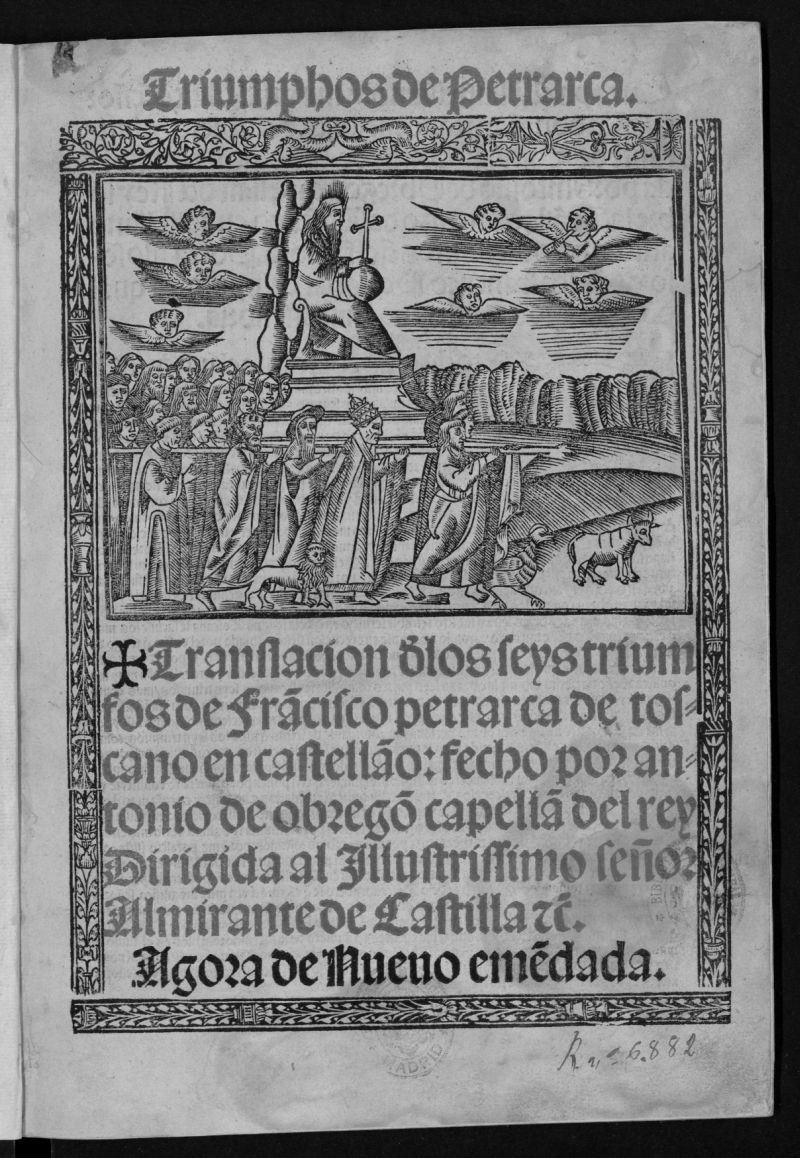 Triumphos de Petrarca.
✠ Translacion d̃los seys trium
fos de Frãcisco petrarca de tos-
cano en castellão: fecho por an-
tonio de obregõ capellã del rey
Dirigida al Illustrissimo señor
Almirante de Castilla ⁊c̃.
Agora de Nueuo emẽdada.
R. n.º 6.882
MADRID